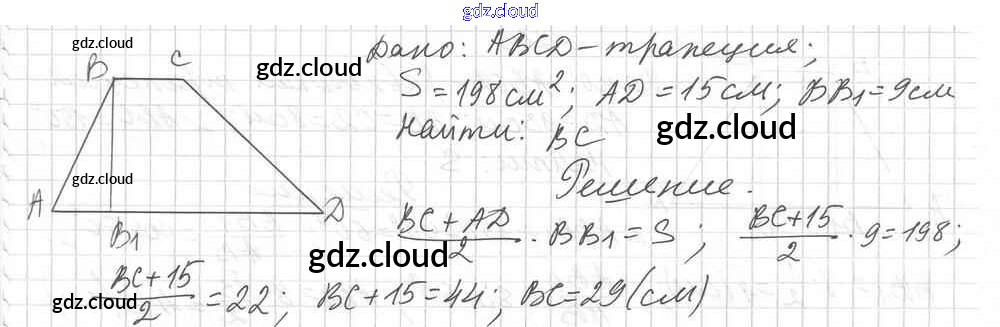 gdz.cloud
gdz.cloud
B C Дано: ABCD - трапеция;
gdz.cloud
S = 198 см²; AD = 15 см; BB₁ = 9 см
Найти: BC
gdz.cloud
gdz.cloud
Решение.
A B₁ D
(BC + AD)/2 · BB₁ = S; (BC + 15)/2 · 9 = 198;
gdz.cloud
(BC + 15)/2 = 22; BC + 15 = 44; BC = 29 (см)
gdz.cloud
gdz.cloud